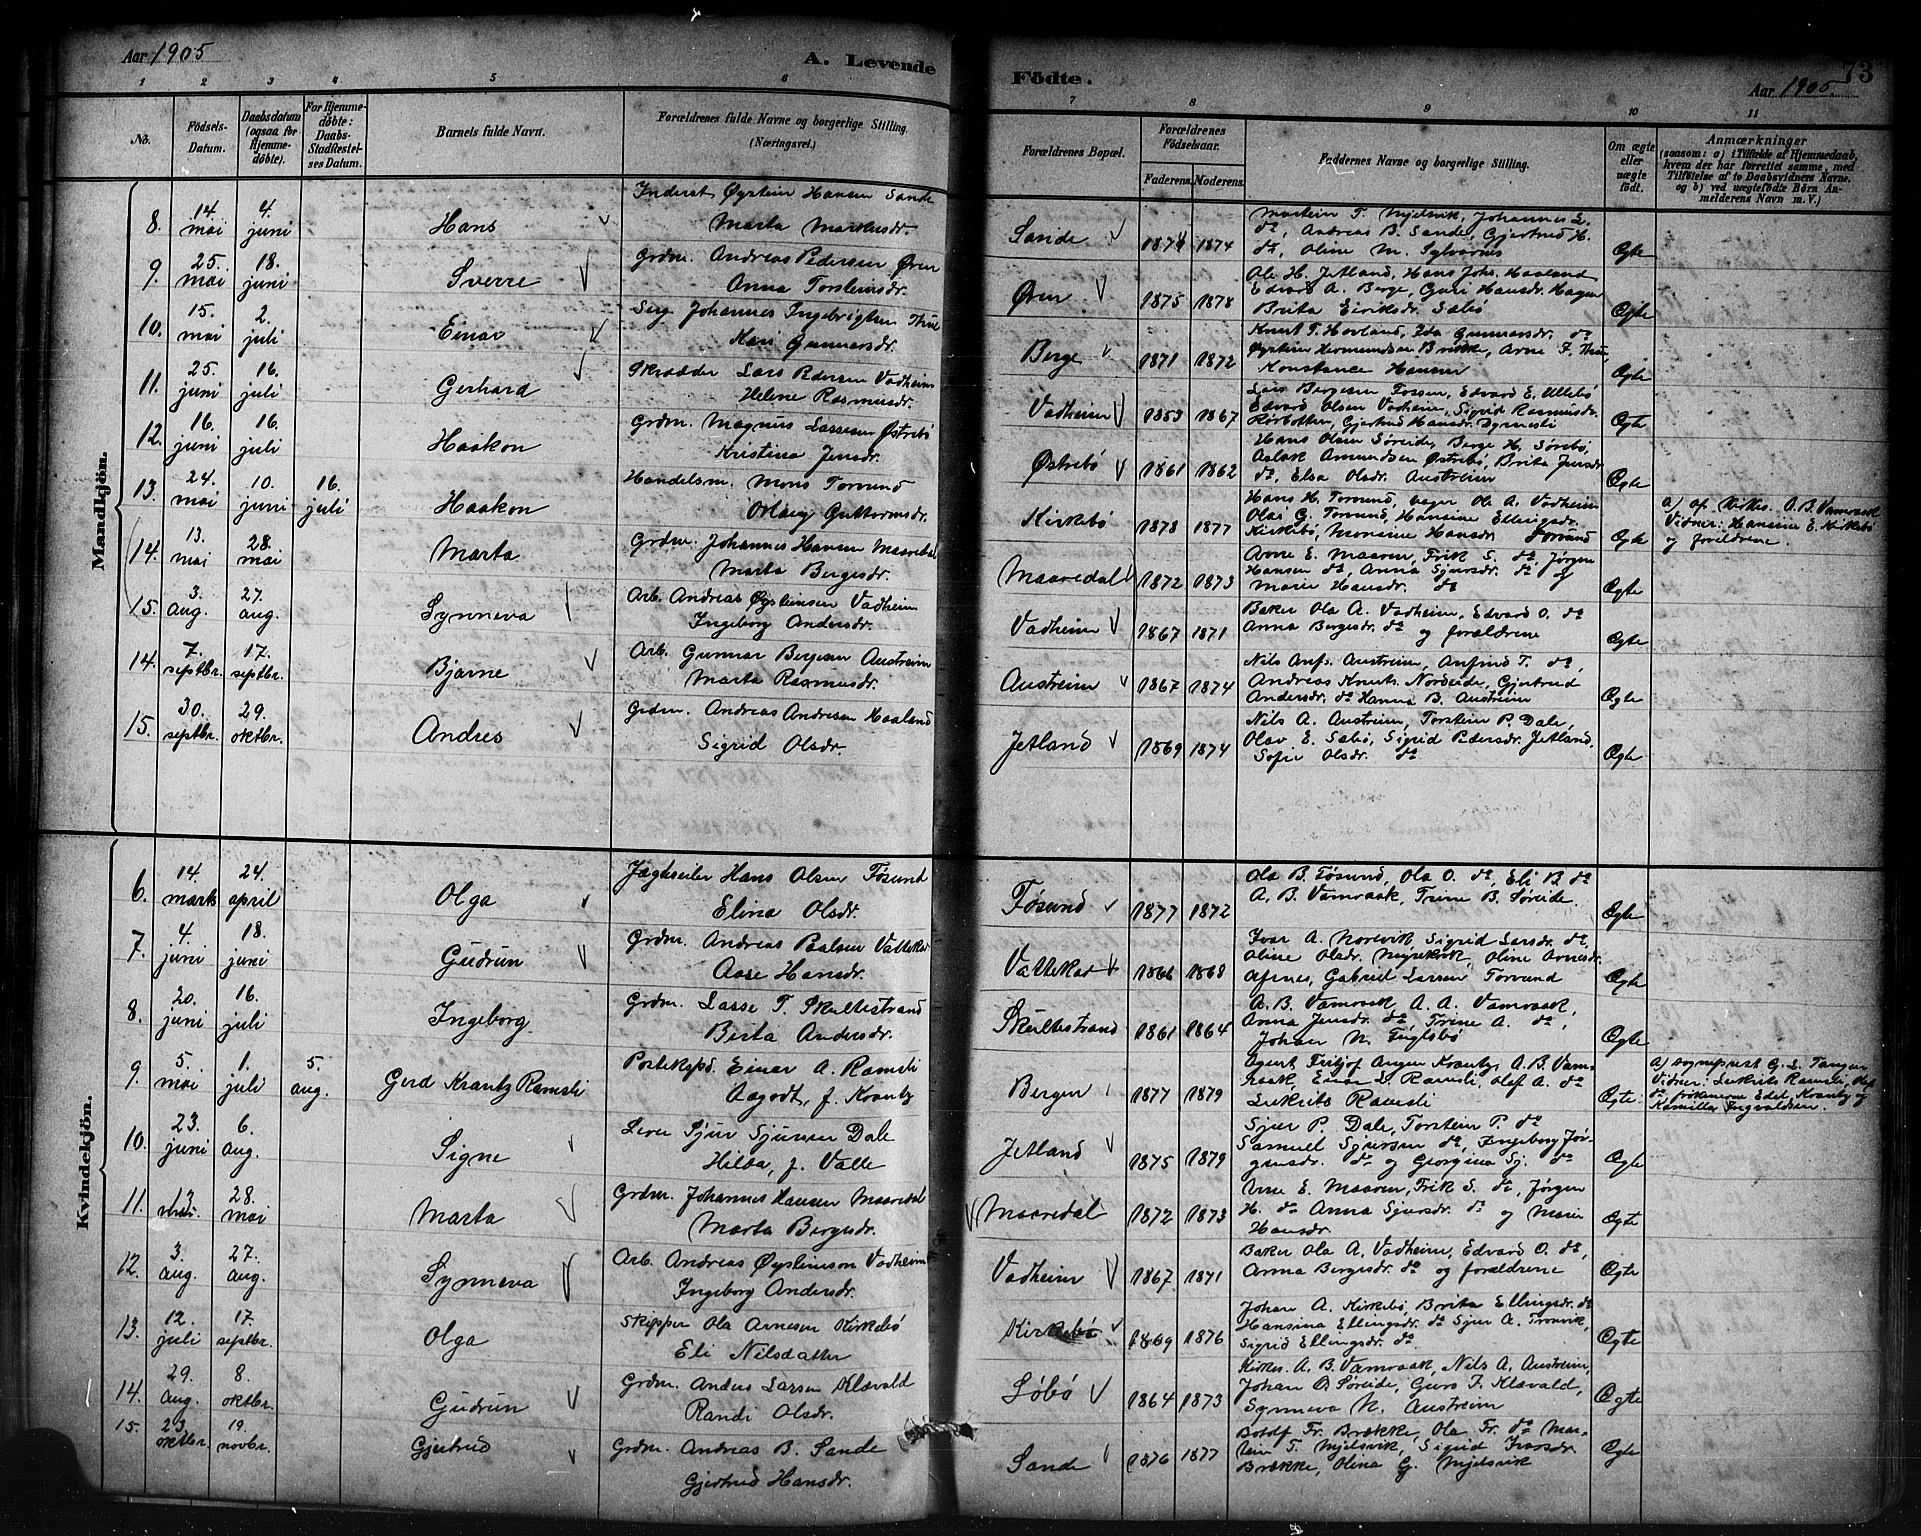 Aar 1905
A. Levende Födte.
73
Aar 1905.
1 2 3 4 5 6 7 8 9 10 11
No.
Födsels-Datum.
Daabsdatum (ogsaa for Hjemmedöbte).
For Hjemmedöbte: Daabs-Stadfæstelses Datum.
Barnets fulde Navn.
Forældrenes fulde Navne og borgerlige Stilling.
(Næringsvei.)
Forældrenes Bopæl.
Forældrenes Födselsaar.
Faderens.
Moderens.
Faddernes Navne og borgerlige Stilling.
Om ægte eller uægte födt.
Anmærkninger
(saasom: a) i Tilfælde af Hjemmedaab, hvem der har forrettet samme, med Tilföielse af to Daabsvidners Navne, og b) ved uægtefödte Börn Anmelderens Navn m. V.)
Mandkjön.
8. 14. mai 4. juni Hans Inderst Øystein Hansen Sande
Marta Markusdr. Sande 1874 1874
Martin T. Mjelsvik, Johannes L.
do, Andreas B. Sande, Gjertrud H.
do, Oline M. Sylvarnes Ægte
9. 25. mai 18. juni Sverre Grdm. Andreas Pedersen Øren
Anna Torsteinsdr. Øren 1875 1878
Ole H. Jetland, Hans Johs. Haaland
Edvard A. Berge, Guri Hansdr. Hagen
Brita Eiriksdr. Sæbø Ægte
10. 15. mai 2. juli Einar Serg. Johannes Ingebrigtsen Thue
Kari Gunnarsdr. Berge 1871 1872
Knut T. Hovland, Ida Gunnarsdr. do
Øystein Hermundsen Brekke, Arne F. Thue,
Konstance Hansen Ægte
11. 25. juni 16. juli Gerhard Skrædder Lars Pedersen Vadheim
Helene Rasmusdr. Vadheim 1853 1867
Lars Bergesen Fossen, Edvard E. Ullebø
Edvard Olsen Vadheim, Sigrid Rasmusdr.
Rørbotten, Gjertrud Hansdr. Dyrnesli Ægte
12. 16. juni 16. juli Haakon Grdm. Magnus Lassesen Østrebø
Kristina Jensdr. Østrebø 1861 1862
Hans Olsen Søreide, Berge H. Sørebø
Aslak Amundsen Østrebø, Brita Jensdr
do, Elsa Olsdr. Austreim Ægte
13. 24. mai 10. juni 16. juli Haakon Handelsm. Mons Torvund
Guttormsdr. Kirkebø 1878 1877
Hans H. Torvund, bager Ole A. Vadheim
Olai G. Torvund, Hansine Ellingsdr.
Kirkebø, Monsine Hansdr. Torvund Ægte
a) af kirkes. A. B. Vamraak
Vidner: Hansine E. Kirkebø
og forældrene.
14. 13. mai 28. mai Marta Grdm. Johannes Hansen Maaredal
Marta Bergesdr. Maaredal 1872 1873
Arne E. Maaren, Frik S. do, Jørgen
Hansen do, Anna Sjursdr. do og
Marie Hansdr. do Ægte
15. 3. aug. 27. aug. Synneva Arb. Andreas Øysteinsen Vadheim
Ingeborg Andersdr. Vadheim 1867 1871
Baker Ola A. Vadheim, Edvard O. do
Anna Bergesdr. do og forældrene Ægte
14. 7. septbr. 17. septbr. Bjarne Arb. Gunnar Bergesen Austreim
Marta Rasmusdr. Austreim 1867 1874
Nils Anfs. Austreim, Anfind T. do,
Andreas Knuts. Nordeide, Gjertrud
Andersdr. do Hanna B. Austreim Ægte
15. 30. septbr. 29. oktbr. Andres Grdm. Andreas Andresen Haaland
Sigrid Olsdr. Jetland 1869 1874
Nils A. Austreim, Torstein P. Dale,
Olav E. Sæbø, Sigrid Pedersdr. Jetland,
Sofie Olsdr. do Ægte
Kvindekjön.
6. 14. marts 24. april Olga Jægtseiler Hans Olsen Føsund
Elina Olsdr. Føsund 1877 1872
Ola B. Føsund, Ola O. do, Eli B. do
A. B. Vamraak, Trine B. Søreide. Ægte
7. 4. juni 18. juni Gudrun Grdm. Andreas Paalsen Vattekar
Aase Hansdr. Vattekar 1866 1868
Ivar A. Norevik, Sigrid Larsdr. do,
Oline Olsdr. Myrekvik, Oline Arnesdr.
Afnes, Gabriel Larsen Torvund Ægte
8. 20. juni 16. juli Ingeborg Grdm. Lasse T. Skultestrand
Berta Andersdr. Skultestrand 1861 1864
A. B. Vamraak, A. A. Vamraak,
Anna Jensdr. do, Trine A. do,
Johan N. Fuglebø Ægte
9. 5. mai 1. juli 5. aug. Gerd Krantz Ramsli Postekspd. Einar A. Ramsli
Aagodt, f. Krantz Bergen 1877 1879
Agent Fritjof Krantz, A. B. Vam-
raak, Einar L. Ramsli, Olaf A. do
Lukrits Ramsli Ægte.
a) sogneprest G. L. Tangen
Vidner: Lukrits Ramsli, Olaf
do, frøknerne Edel Krantz og
Kamilla Ingvaldsen.
10. 23. juni 6. aug. Signe Sjur Sjursen Dale
Hilda, f. Valle Jetland 1875 1879
Sjur P. Dale, Torstein P. do
Samuel Sjursen do, Ingeborg Jør-
gensdr. do og Georgina Sj. do Ægte
11. 13. mai. 28. mai Marta Grdm. Johannes Hansen Maaredal
Marta Bergesdr. Maaredal 1872 1873
Arne E. Maaren, Frik S. do, Jørgen
H. do Anna Sjursdr. do og Marie
Hansdr. Ægte
12. 3. aug. 27. aug. Synneva Arb. Andreas Øysteinson Vadheim
Ingeborg Andersdr. Vadheim 1867 1871
Baker Ola A. Vadheim, Edvard O. do,
Anna Bergesdr. do og forældrene Ægte
13. 12. juli 17. septbr. Olga Skipper Ola Arnesen Kirkebø
Eli Nilsdatter Kirkebø 1869 1876
Johan A. Kirkebø, Brita Ellingsdr. do
Hansina Ellingsdr. do Sjur A. Tronvik,
Sigrid Ellingsdr. do Ægte
14. 29. aug. 8. oktbr. Gudrun Grdm. Anders Larsen Klævald
Randi Olsdr. Søbø 1864 1873
Kirkes. A. B. Vamraak, Nils A. Austreim,
Johan O. Søreide, Guro T. Klævald,
Synneva N. Austreim Ægte
15. 23. oktbr. 19. novbr. Gjertrud Grdm. Andreas B. Sande
Gjertrud Hansdr. Sande 1876 1877
Botolf Fr. Brække, Ola Fr. do Mar-
tein T. Mjelsvik, Sigrid Ivarsdr.
Brække, Olina G. Mjelsvik Ægte